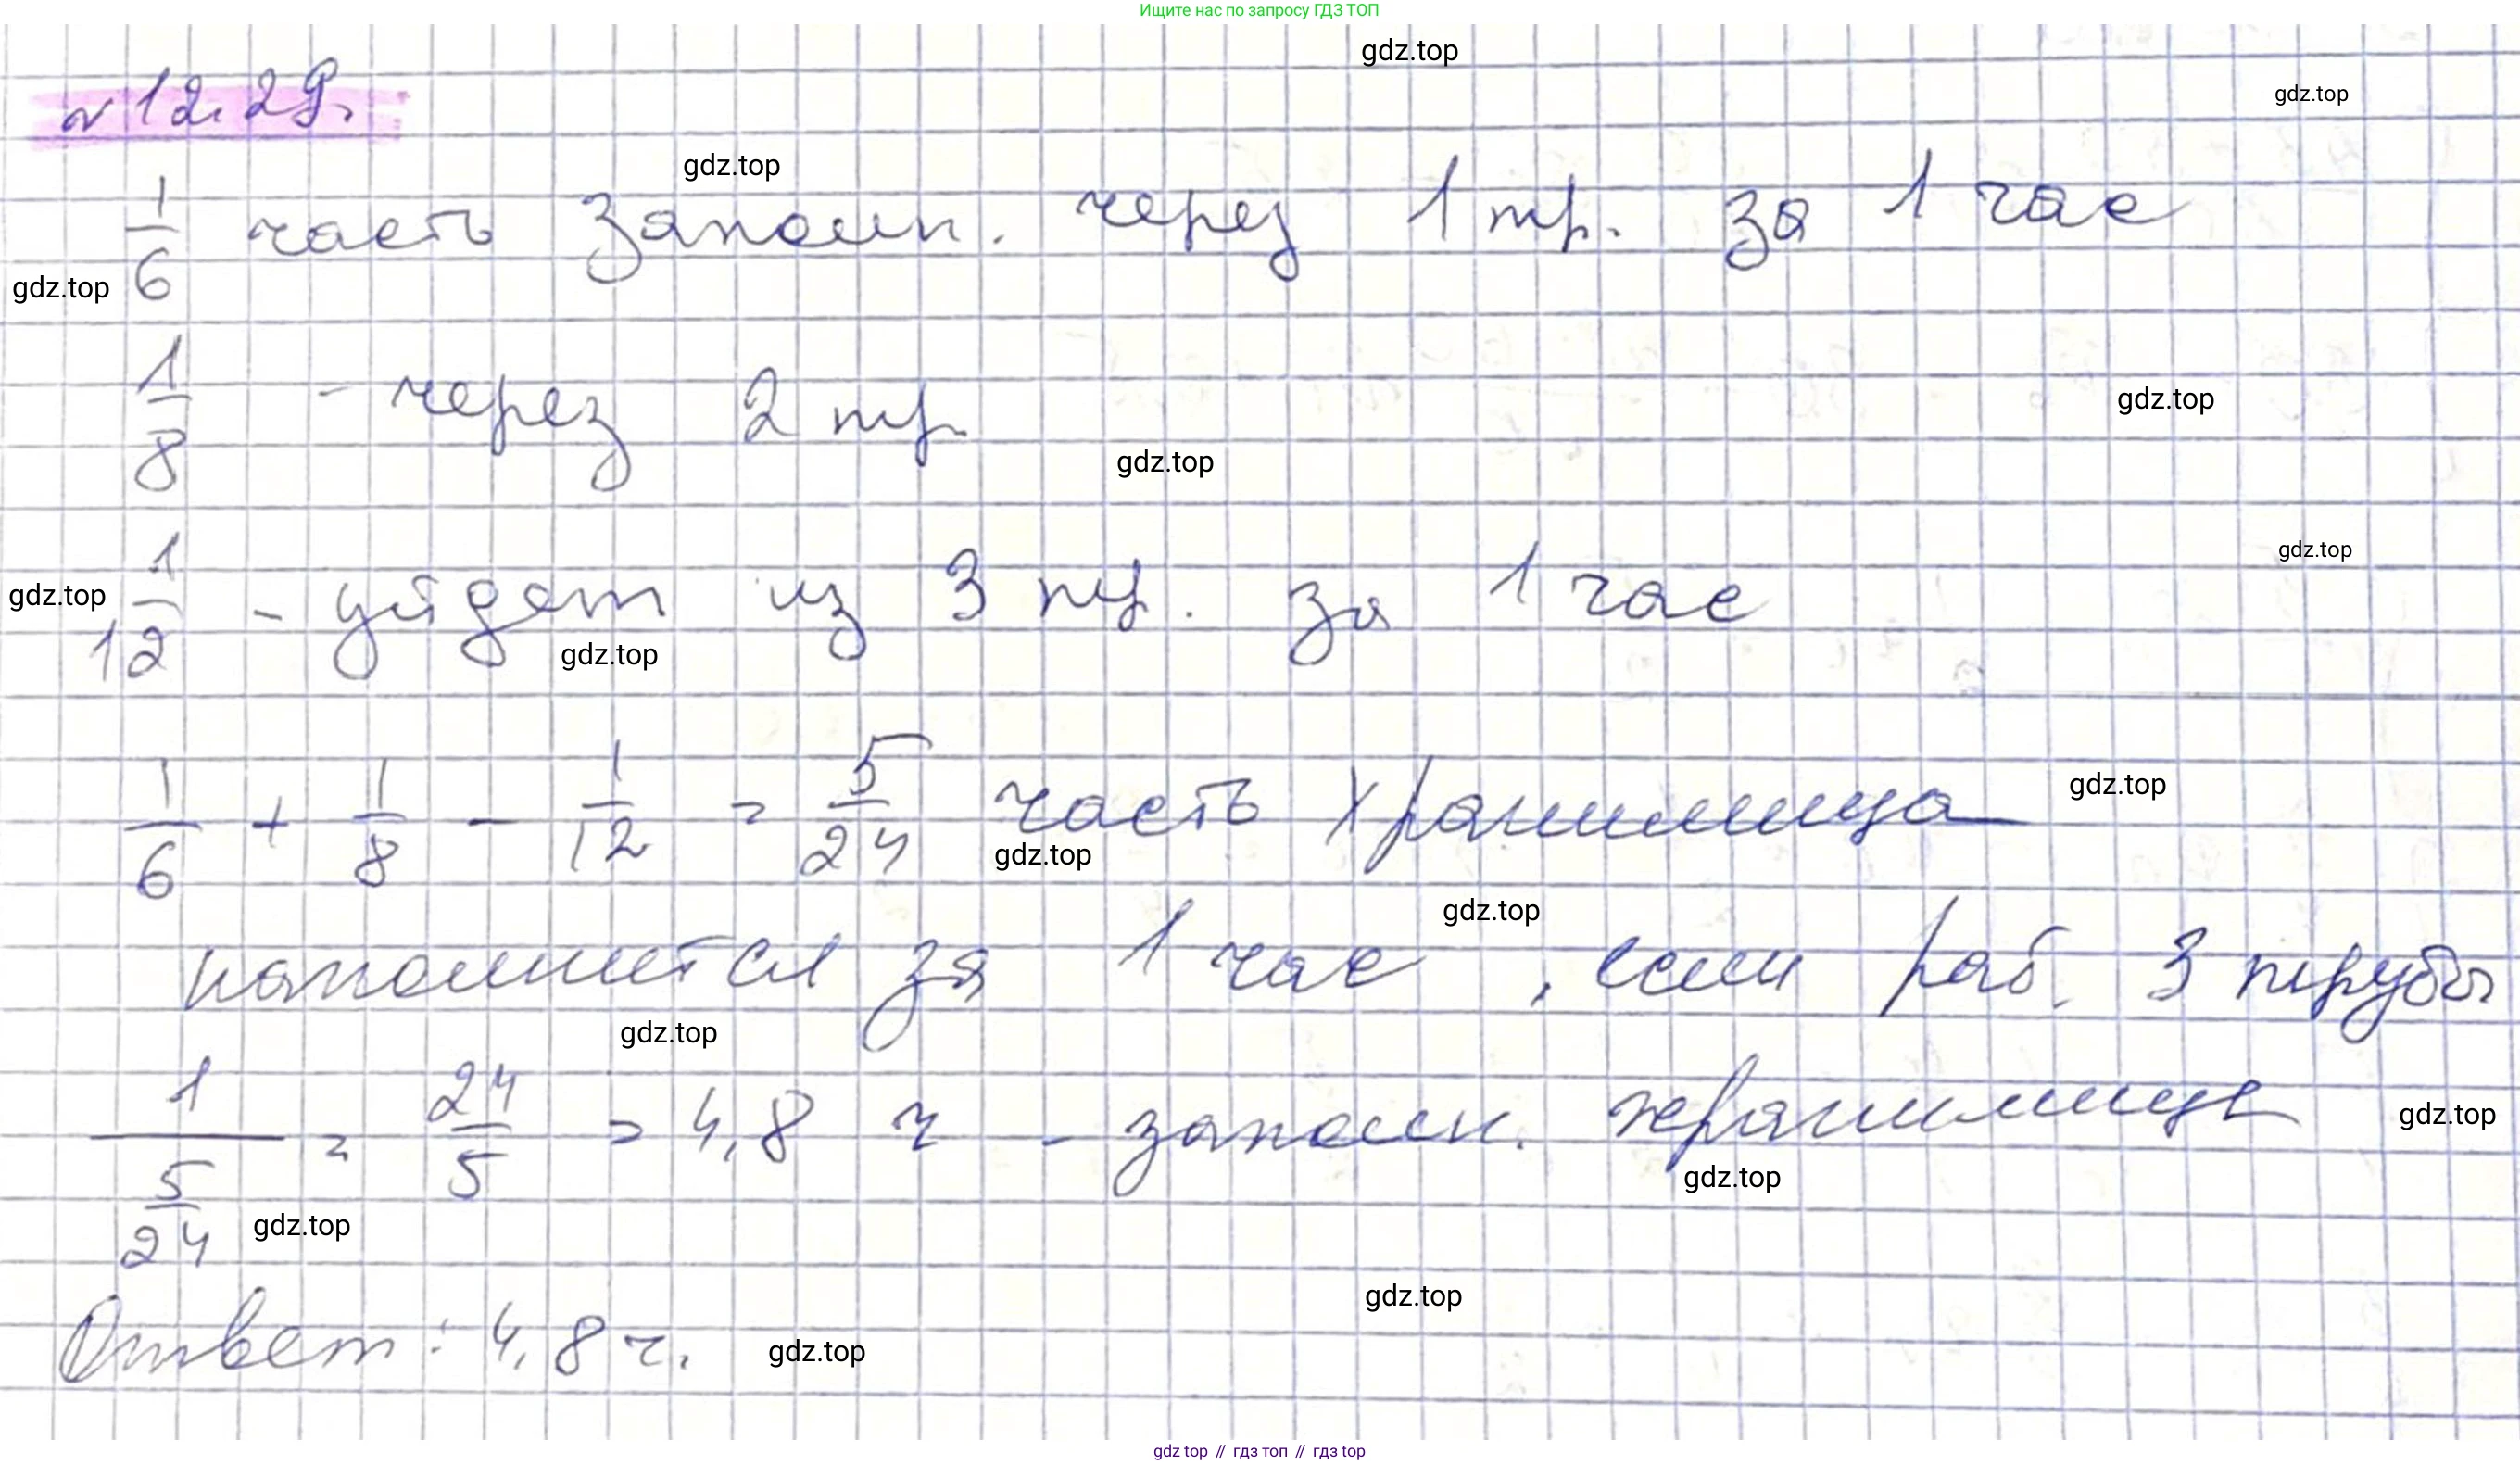 Ищите нас по запросу ГДЗ ТОП
gdz.top
№ 12.29.
gdz.top
gdz.top
1/6 часть заполн. через 1 тр. за 1 час
gdz.top
1/8 - через 2 тр.
gdz.top
gdz.top
1/12 - уйдет из 3 тр. за 1 час
gdz.top
gdz.top
gdz.top
1/6 + 1/8 - 1/12 = 5/24 часть хранилища
gdz.top
gdz.top
gdz.top
наполнится за 1 час, если раб. 3 трубы
gdz.top
1/(5/24) = 24/5 = 4,8 ч - заполн. хранилище
gdz.top
gdz.top
gdz.top
gdz.top
Ответ: 4,8 ч.
gdz.top
gdz top // гдз топ // гдз top